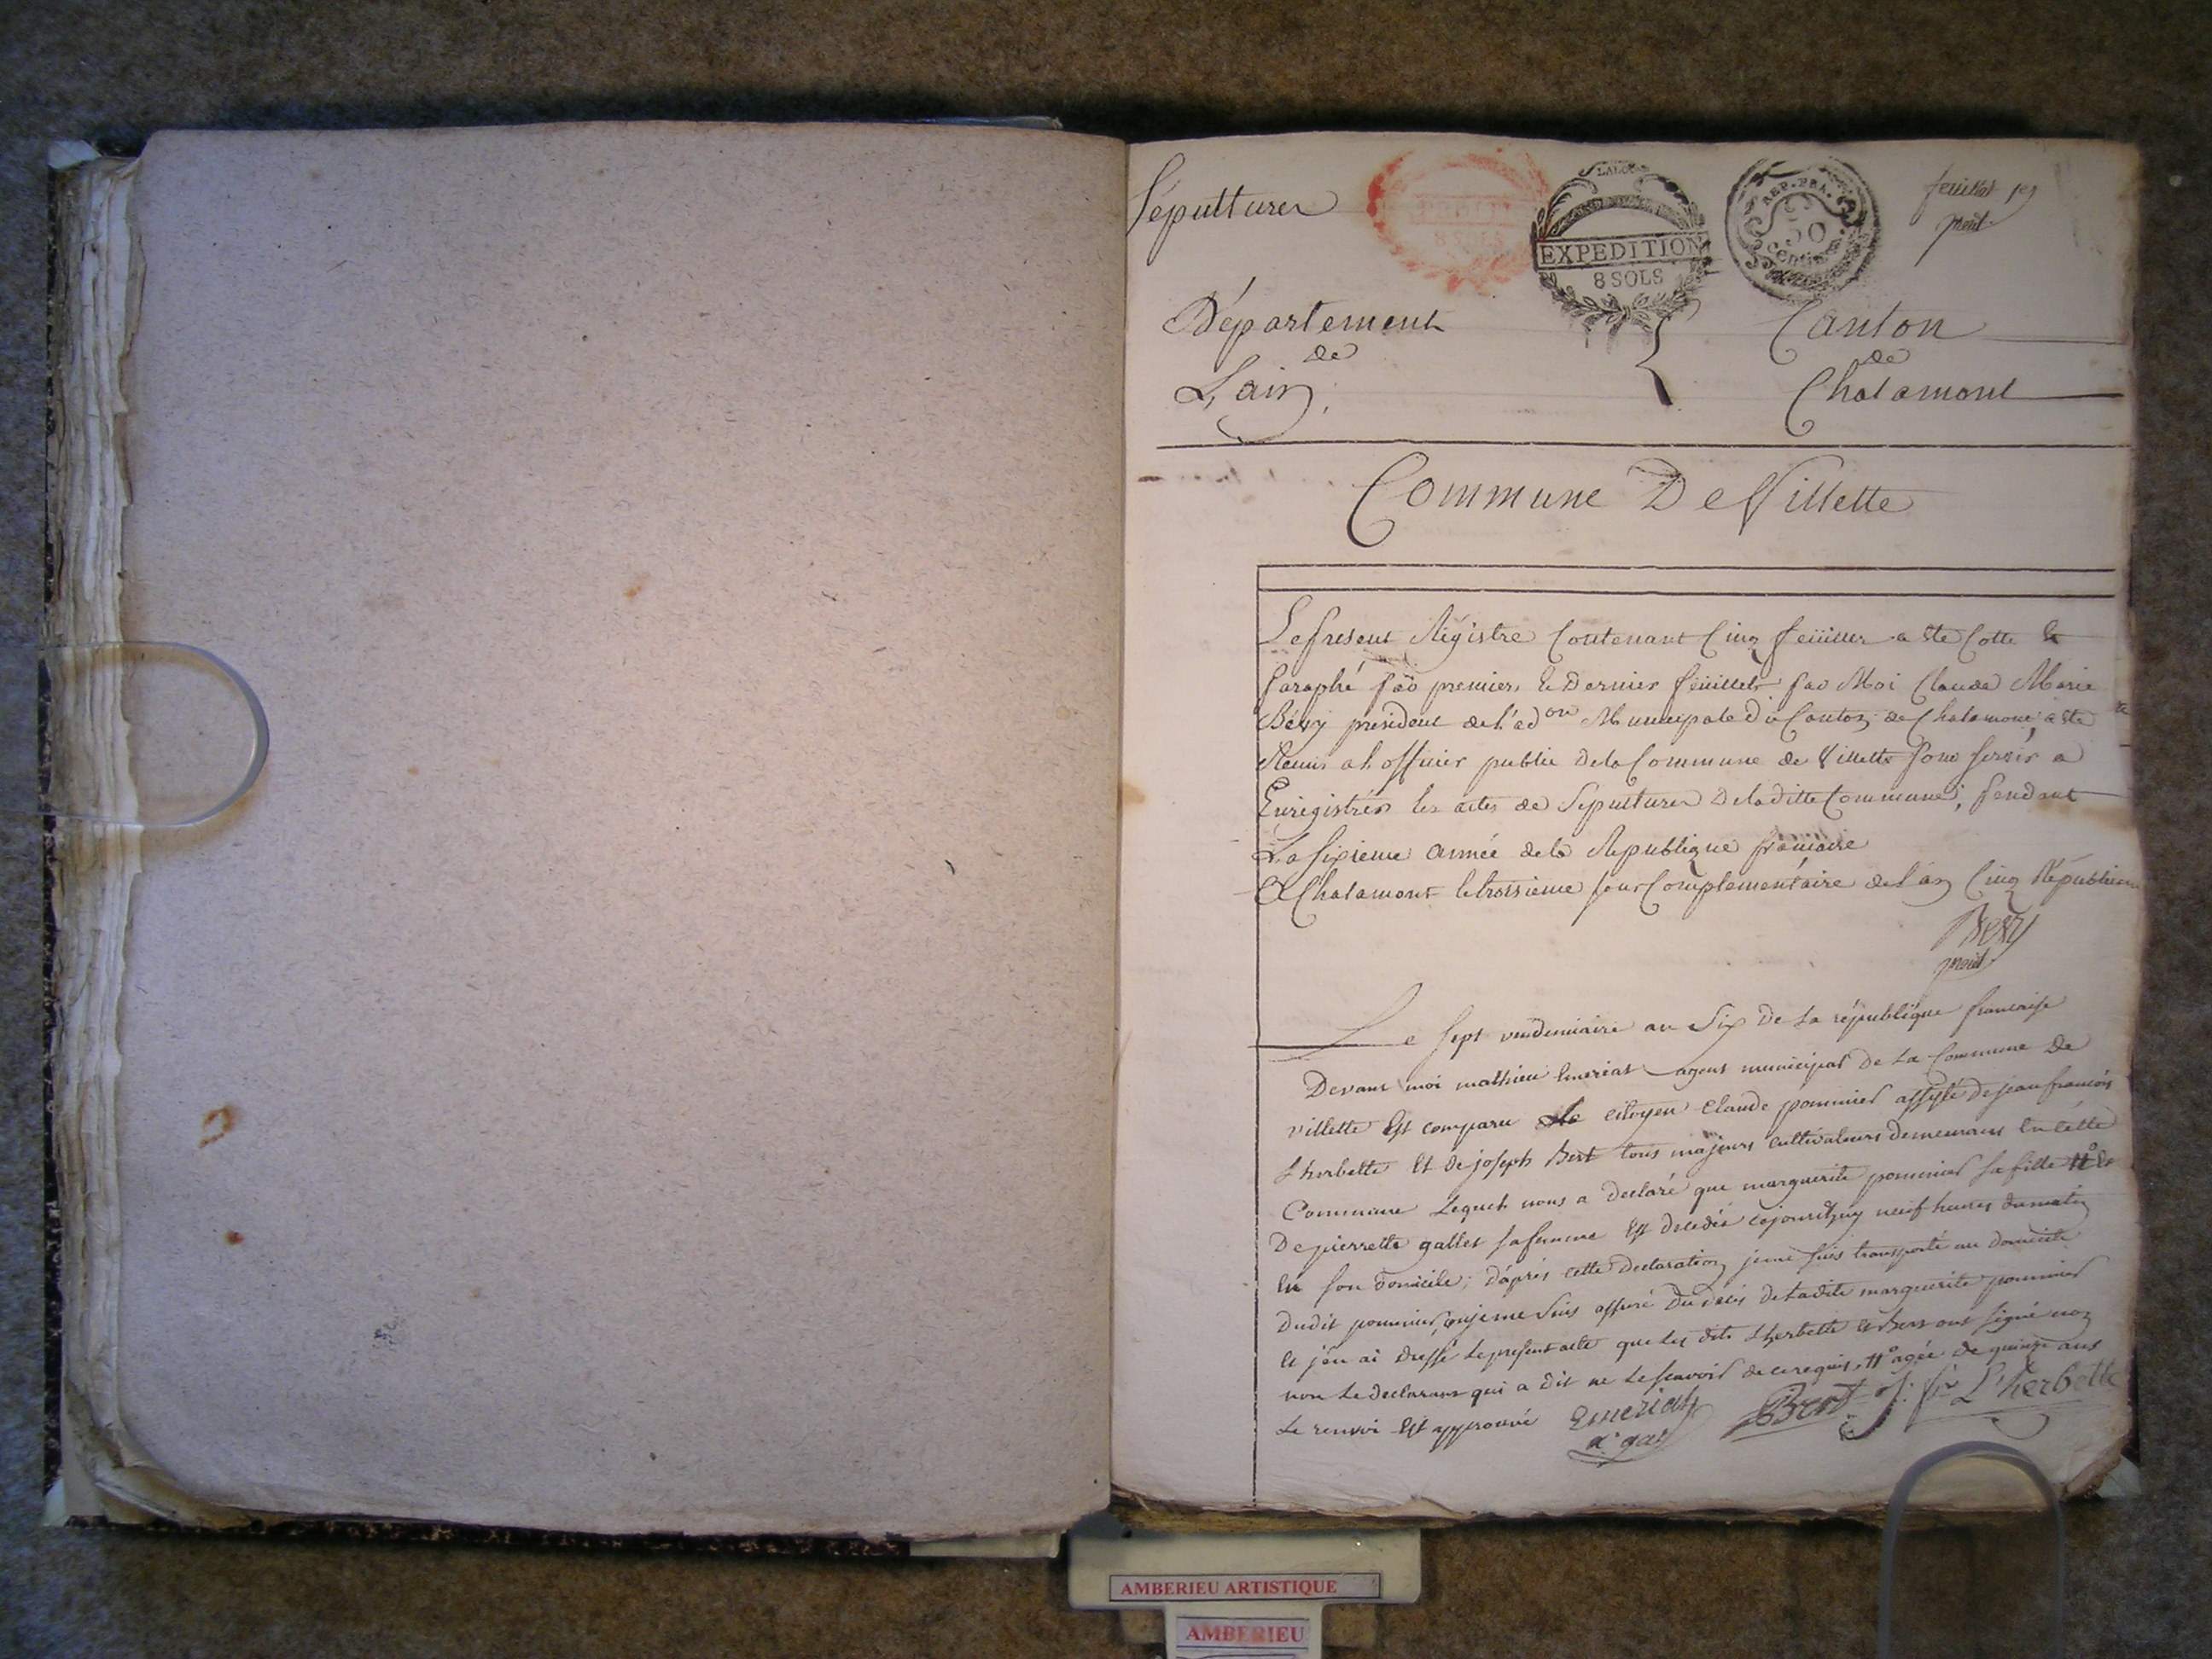 Sépultures
LALOI
EXPEDITION
8 SOLS
REP. FRA.
50
Centimes
feuillet 1er
présid.
Département
de
L'ain
Canton
de
Chalamont
Commune De Villette
Le present Régistre Contenant Cinq feuillets a ete Cotté &
Paraphé par premier & Dernier feuillets par Moi Claude Marie
Béry president de l'adon Municipale du Canton de Chalamont, a ete
Remis a l'officier public de la Commune de Villette Pour servir a
Enregistrer les actes de Sepultures De laditte Commune, Pendant
La sixieme année de la Republique francaise
A Chalamont le troisieme jour Complementaire de l'an Cinq Républicain
Bery
présid.
Le sept vendemiaire an Six De La république francaise
Devant moi mathieu Emeriat agent municipal De La Commune De
villette Est comparu Le citoyen Claude pommier assisté De jean francois
Lherbette Et De joseph Bert tous majeurs cultivateurs demeurans En cette
Commune Lequel nous a declaré que marguerite pommier sa fille #° &
De pierrette gallet sa femme Est decedée cejourdhuy neuf heures du matin
En son Domicile; D'après cette Declaration je me suis transporté au domicile
Dudit pommier, ou je me suis assuré Du décès De Ladite marguerite pommier
Et j'en ai Dressé Le present acte que Les dits Lherbette et Bert ont signé
non Le declarant qui a dit ne Le scavoir de ce requis, #° agée de quinze ans
Le renvoi Est approuvé Emeriat Bert j. fr L'herbette
agent
AMBERIEU ARTISTIQUE
AMBERIEU